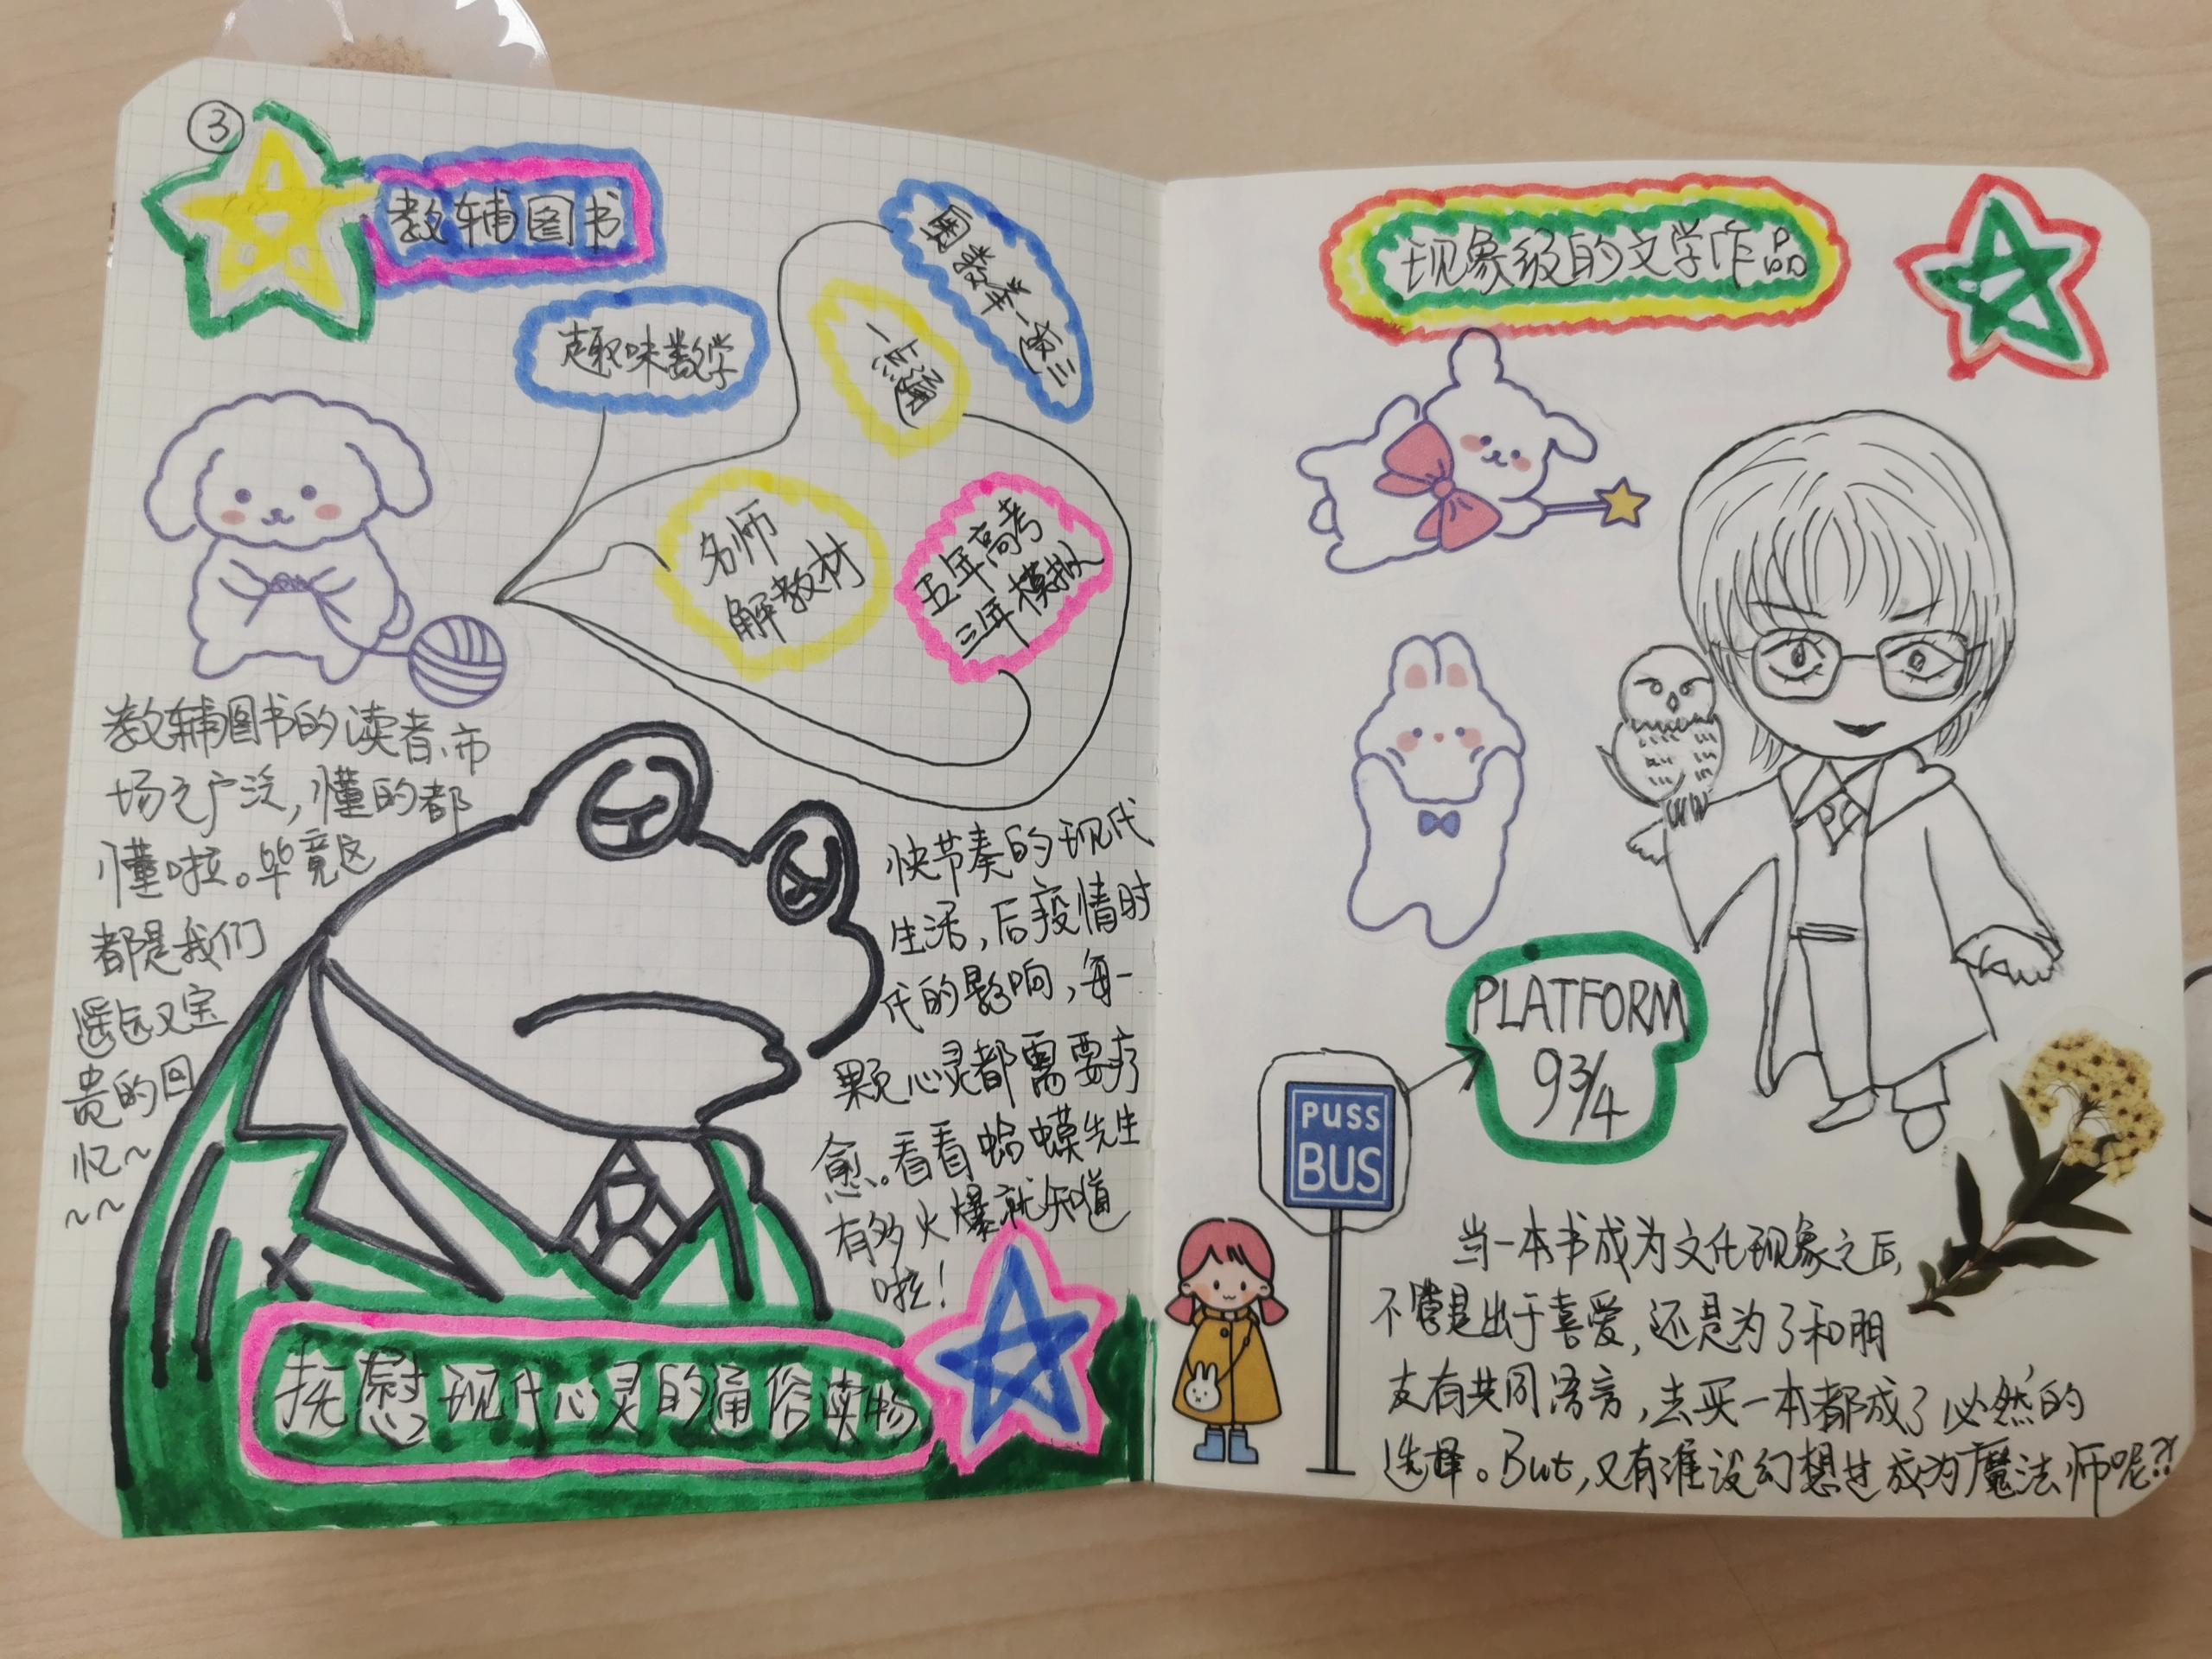 ③
教辅图书
趣味数学
奥数举一反三
一点通
名师
解教材
五年高考
三年模拟
教辅图书的读者市
场之广泛，懂的都
懂啦。毕竟这
都是我们
遥远又宝
贵的回
忆～
～～
快节奏的现代
生活，后疫情时
代的影响，每一
颗心灵都需要疗
愈。看看蛤蟆先生
有多火爆就知道
啦！
抚慰现代心灵的通俗读物
现象级的文学作品
PLATFORM
9¾
PUSS
BUS
当一本书成为文化现象之后，
不管是出于喜爱，还是为了和朋
友有共同语言，去买一本都成了必然的
选择。But，又有谁没幻想过成为魔法师呢?!